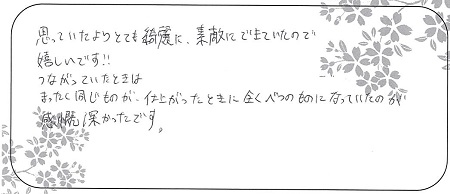 思っていたよりとても綺麗に、素敵にできていたので
嬉しいです!!
つながっていたときは
まったく同じものが、仕上がったときに全くべつのものになっていたのが
感慨深かったです。